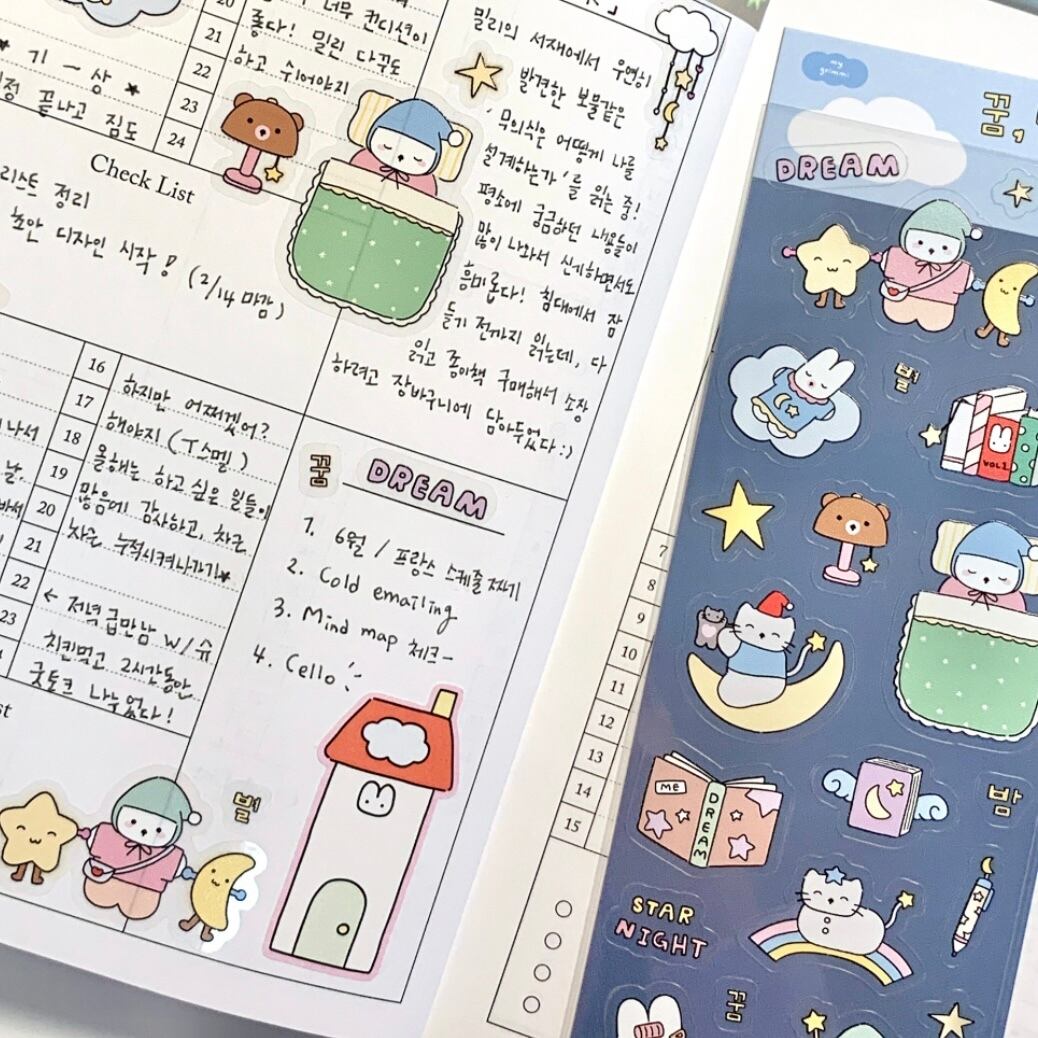 20
21
22
23
24
너무 컨디션이
좋다! 밀린 다꾸도
하고 쉬어야지
* 기 — 상 *
끝나고 짐도
Check List
리스트 정리
초안 디자인 시작! (2/14 마감)
밀리의 서재에서 우연히
발견한 보물같은
'무의식은 어떻게 나를
설계하는가'를 읽는 중!
평소에 궁금하던 내용들이
많이 나와서 신기하면서도
흥미롭다! 침대에서 잠
들기 전까지 읽는데, 다
읽고 종이책 구매해서 소장
하려고 장바구니에 담아두었다:)
16
17
18
19
20
21
22
23
하지만 어쩌겠어?
해야지 (T스멜)
올해는 하고 싶은 일들이
많음에 감사하고, 차근
차근 누적시켜나가기*
← 저녁 급만남 w/슈
치킨먹고 2시간동안
굿토크 나누었다!
꿈 DREAM
1. 6월 / 프랑스 스케줄
2. Cold emailing
3. Mind map 체크-
4. Cello
별
7
8
9
10
11
12
13
14
15
my
grimmi
꿈,
DREAM
별
VOL1.
ME
DREAM
밤
STAR
NIGHT
꿈